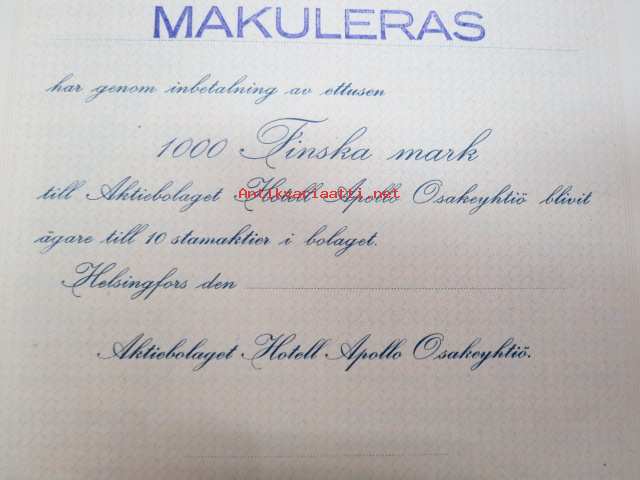 MAKULERAS
har genom inbetalning av ettusen
1000 Finska mark
till Aktiebolaget Hotell Apollo Osakeyhtiö blivit
Antikvariaatti.net
ägare till 10 stamaktier i bolaget.
Helsingfors den
Aktiebolaget Hotell Apollo Osakeyhtiö.